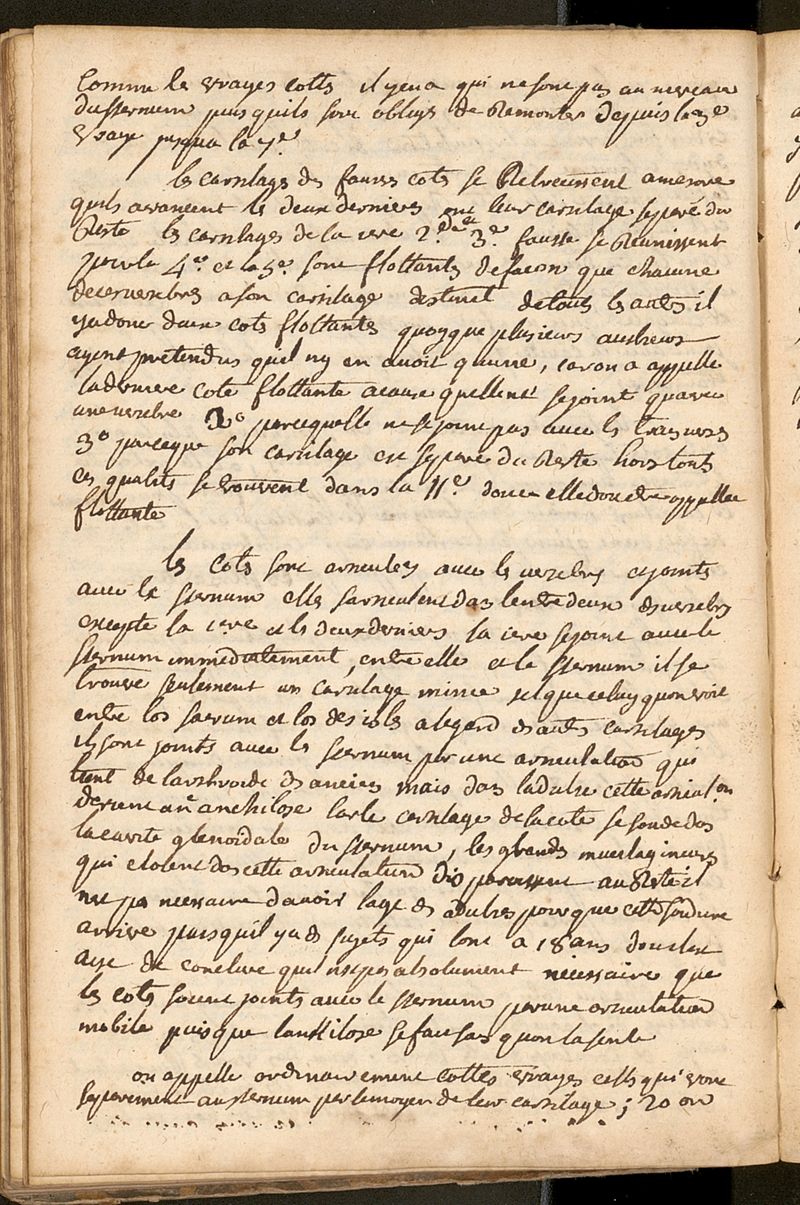 Comme les vrayes cotts il yena qui ne sont pas au niveau
du sternum puis quils sont obliges de Remonter depuis la 3e
vraye jusqua la 7e
les carsilage des fausses cots se Retressissent amesure
quils avancent les deux dernieres ont leur carsilage separé du
Reste les carsilages de la 1ere 2.de et 3e. fausse se Reunissent
pour la 4e. et la 5e. sont flottantes de facon que chacune
de ces a son carsilage destinct de touts les autres il
ya donc deux cots flottantes quoyque plusieurs autheurs
ayent pretendus quil ny en avoit quune, car on a appelle
la derniere cote flottante acause quelle ne se joint quavec
une vertebre 2o parcequelle ne se joint pas avec les transverses
3o parceque son carsilage est separé du Reste hors touts
ces qualités se trouvent dans la 11e. donc elle doit etre appellée
flottante
les cots sont articulées avec les vertebres et joints
avec le sternum elles sarticulent dans lentre deux des vertebres
excepte la 1ere et les deux dernieres la 1ere se joint avec le
sternum immediatement, entre elle et le sternum il se
trouve seulement un carsilage mince tel que celuy quon voit
entre los sacrum et los des isles alegard des autres carsilages
ils sont joints avec le sternum par une articulation qui
tient de larthrodie des anciens mais dans ladulte cette articulaon
devient anchilose car le carsilage de la cote se soude dans
la cavite glenoidale du sternum, les glandes mucilagineuses
qui etoient dans cette articulation disparaissent au Reste il
nest pas necessaire davoir lage des adultes pour que cette soudure
arrive puisquil ya des sujets qui lont a 18 ans donc il est
aise de conclure quil nest pas absolument necessaire que
les cots soient joints avec le sternum par une articulation
mobile puisque lankilose se fait sans quon la sente
on appelle ordinairement cottes vrayes cells qui vont
separement au sternum par le moyen de leur carsilage; 20 on